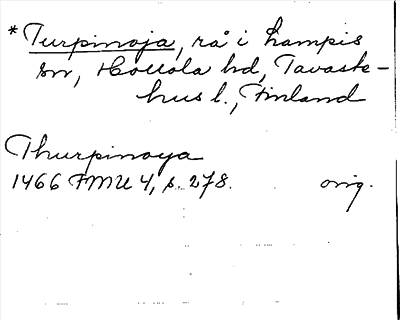 *Turpinoja, rå i Lampis
sn, Hollola hd, Tavaste-
hus l., Finland
Thurpinoya
1466 FMU 4, s. 278. orig.